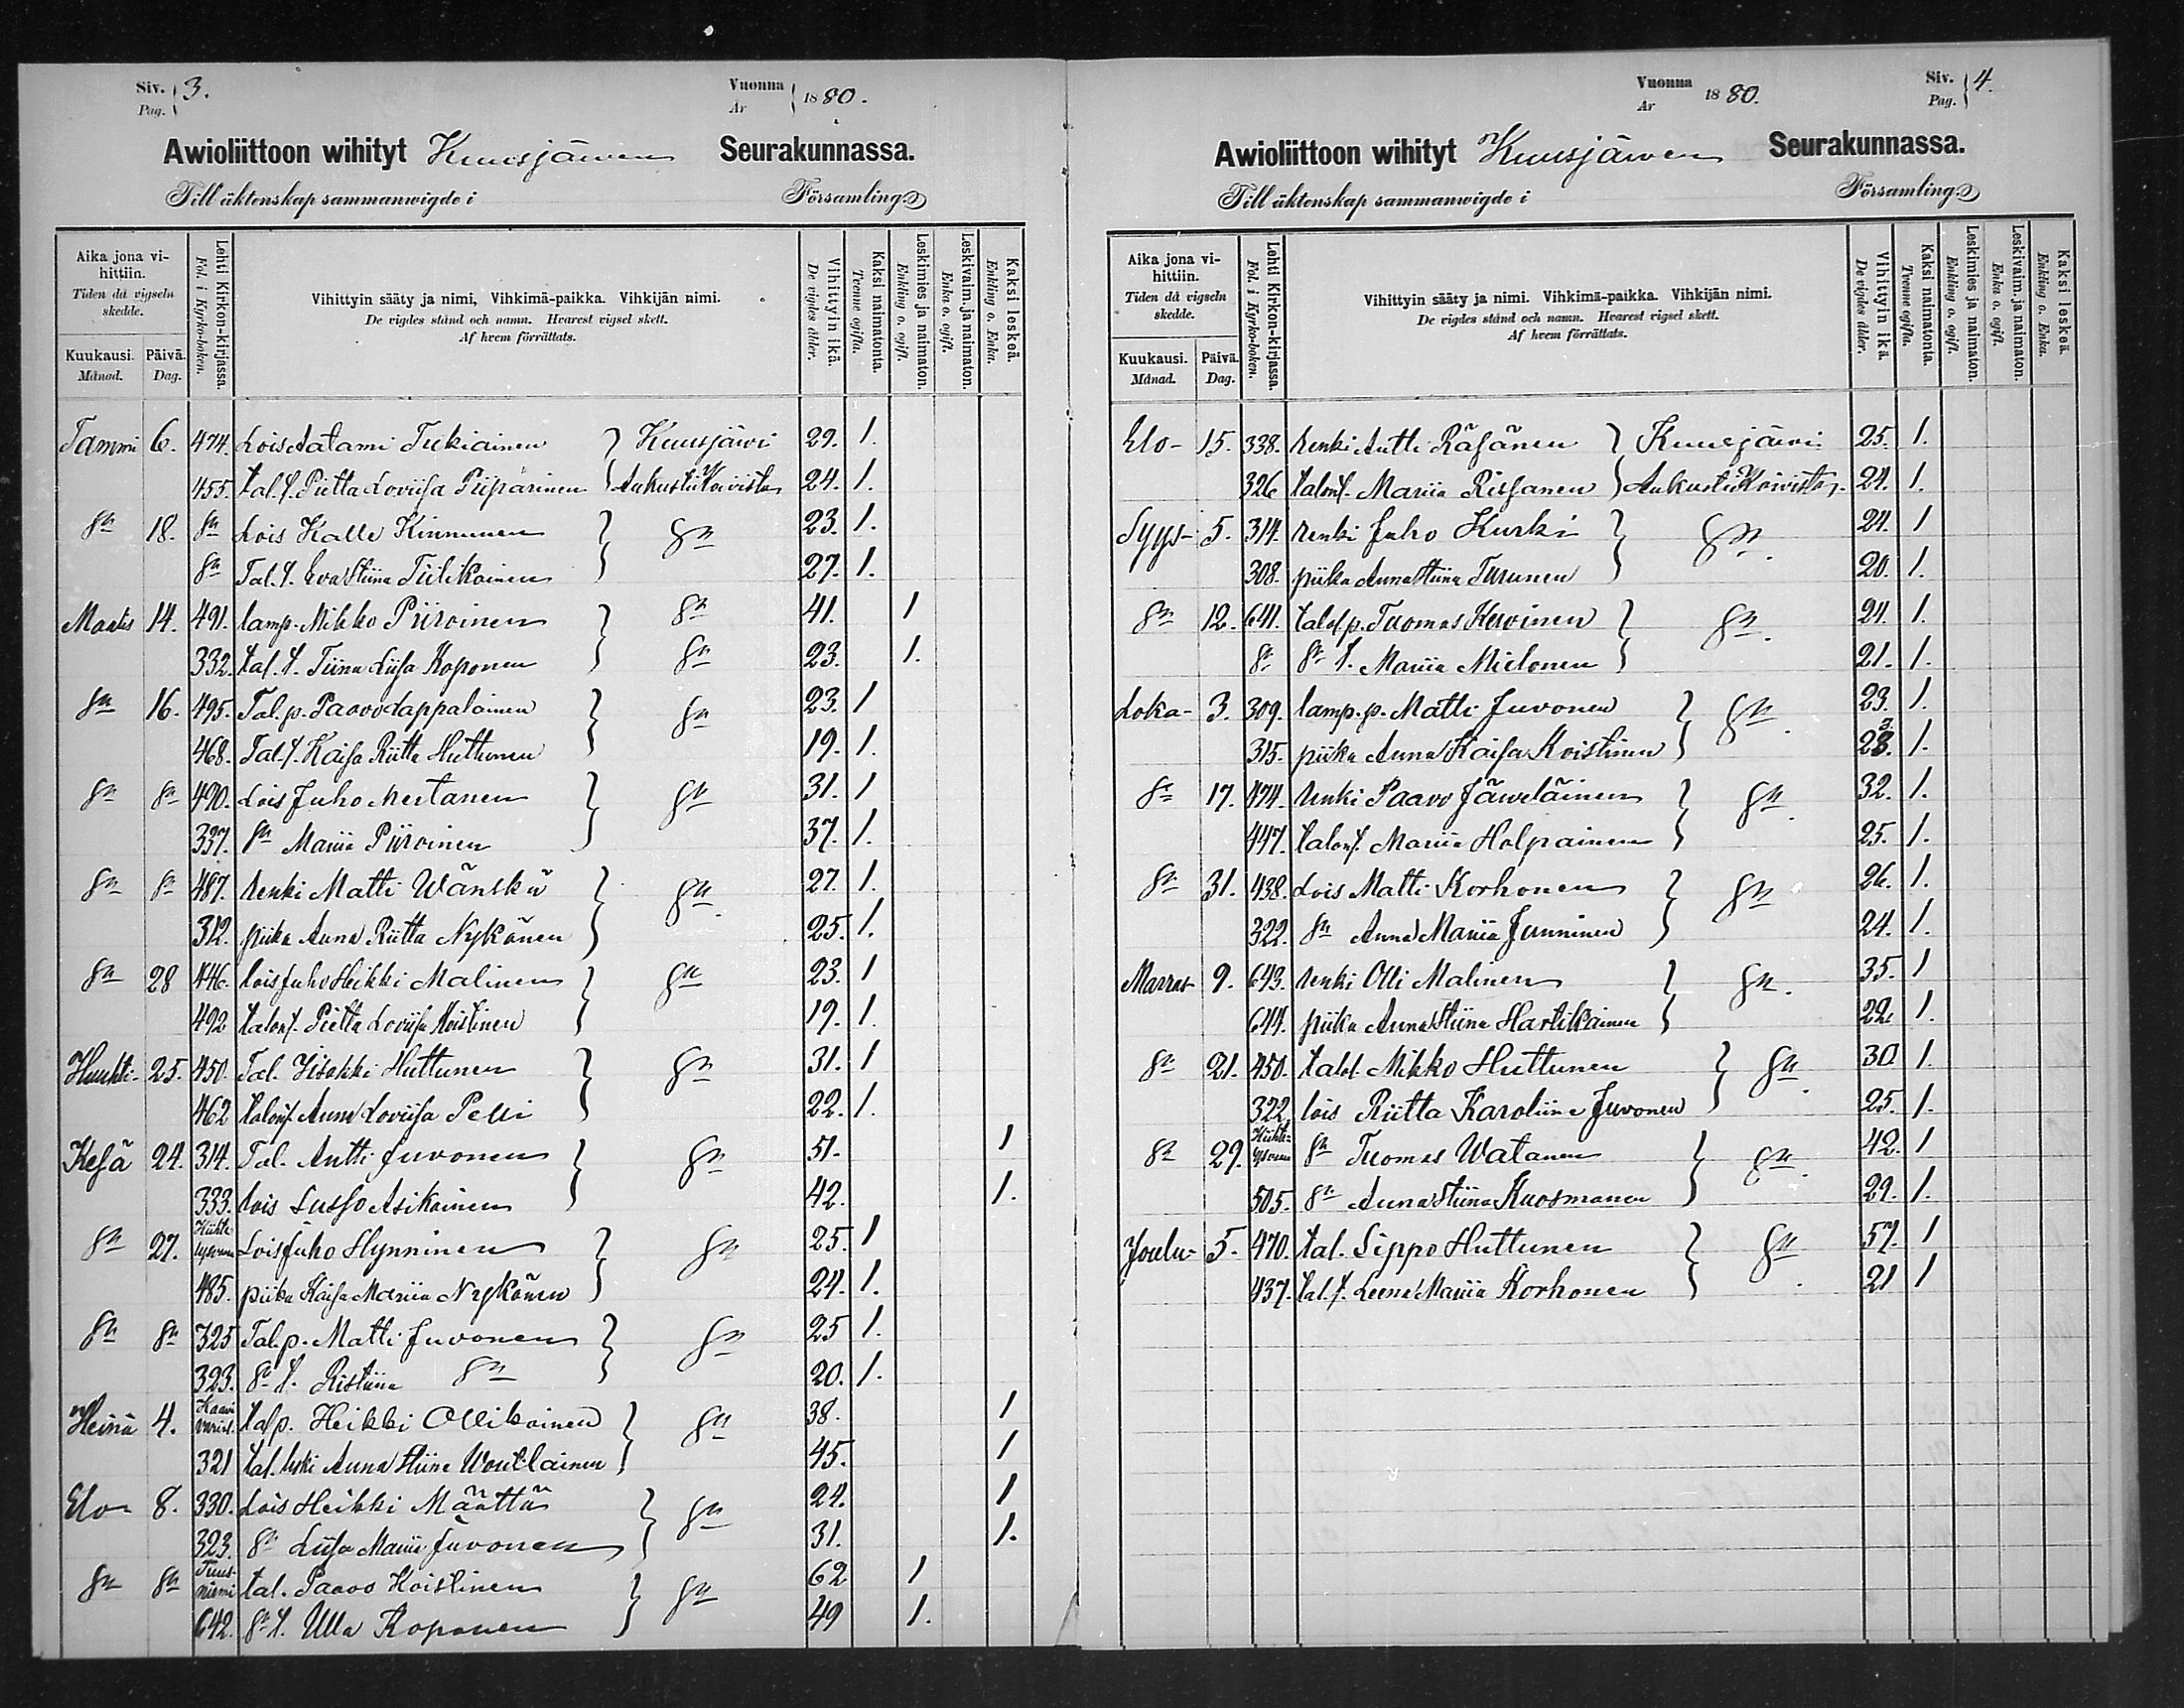 Siv. Pag. 3.
Vuonna Ar 1880.
Awioliittoon wihityt Kuusjärwen Seurakunnassa.
Till äktenskap sammanwigde i Församling.
Aika jona vihittiin.
Tiden då vigseln skedde.
Kuukausi. Månad.
Päivä. Dag.
Lehti Kirkon-kirjassa.
Fol. i Kyrko-boken.
Vihittyin sääty ja nimi, Vihkimä-paikka. Vihkijän nimi.
De vigdes stånd och namn. Hvarest vigsel skett.
Af hvem förrättats.
Vihittyin ikä.
De vigdes ålder.
Kaksi naimatonta.
Tvenne ogifta.
Leskimies ja naimaton.
Enkling o. ogift.
Leskivaim. ja naimaton.
Enka o. ogift.
Kaksi leskeä.
Enkling o. Enka.
Tammi 6. 474. Lois Aatami Tukiainen Kuusjärwi 29. 1.
455. tal.t. Pietta Loviisa Piiparinen Aukusti Koivisto 24. 1.
Sn 18. Sn Lois Kalle Kinnunen Sn 23. 1.
Sn Tal.t. Eva Stiina Tiilikainen 27. 1.
Maalis 14. 491. lamp. Mikko Piiroinen Sn 41. 1
332. tal.t. Tiina Liisa Koponen Sn 23. 1.
Sn 16. 495. Tal.p. Paavo Lappalainen Sn 23. 1
468. Tal.t. Kaisa Riitta Huttunen 19. 1.
Sn Sn 490. Lois Juho Mertanen Sn 31. 1
337. Sn Mariia Piiroinen 37. 1.
Sn Sn 487. renki Matti Wänskä Sn 27. 1.
312. piika Anna Riitta Nykänen 25. 1.
Sn 28 446. lois Juho Heikki Malinen Sn 23. 1
492 talont. Pietta Loviisa Koistinen 19. 1.
Huhti- 25. 450. Tal. Iisakki Huttunen Sn 31. 1
462 talont. Anna Loviisa Pelli 22. 1.
Kesä 24. 314. Tal. Antti Juvonen Sn 51. 1
333. lois Susso Asikainen 42. 1.
Sn 27. Kiihtelysvaara Lois Juho Hynninen Sn 25. 1
485. piika Kaisa Mariia Nykänen 24. 1.
Sn Sn 325 Tal.p. Matti Juvonen Sn 25 1.
323. Sn t. Ristiina Sn 20. 1.
Heinä 4. Kaavi tal.p. Heikki Ollikainen Sn 38. 1
321 tal. leski Anna Stiina Woutilainen 45. 1
Elo- 8. 330. Lois Heikki Määttä Sn 24. 1
323. Sn Liisa Mariia Juvonen 31. 1.
Sn Sn Tuusniemi tal. Paavo Koistinen Sn 62 1
642. Sn t. Ulla Koponen 49 1.
Vuonna Ar 1880.
Siv. Pag. 4.
Awioliittoon wihityt Kuusjärwen Seurakunnassa.
Till äktenskap sammanwigde i Församling.
Aika jona vihittiin.
Tiden då vigseln skedde.
Kuukausi. Månad.
Päivä. Dag.
Lehti Kirkon-kirjassa.
Fol. i Kyrko-boken.
Vihittyin sääty ja nimi. Vihkimä-paikka. Vihkijän nimi.
De vigdes stånd och namn. Hvarest vigsel skett.
Af hvem förrättats.
Vihittyin ikä.
De vigdes ålder.
Kaksi naimatonta.
Tvenne ogifta.
Leskimies ja naimaton.
Enkling o. ogift.
Leskivaim. ja naimaton.
Enka o. ogift.
Kaksi leskeä.
Enkling o. Enka.
Elo- 15. 338. renki Antti Räsänen Kuusjärvi 25. 1.
326 talont. Mariia Rissanen Aukusti Koivisto. 24. 1.
Syys- 5. 314. renki Juho Kurki Sn. 24. 1
308. piika Anna Stiina Turunen 20. 1.
Sn 12. 641. talol.p. Tuomas Kervinen Sn. 24. 1.
Sn Sn t. Mariia Mielonen 21. 1.
Loka- 3. 309. lamp.p. Matti Juvonen Sn. 23. 1.
315. piika Anna Kaisa Koistinen 23. 1.
Sn 17. 474. renki Paavo Jäweläinen Sn. 32. 1.
447. talont. Mariia Holpainen 25. 1.
Sn 31. 438. Lois Matti Korhonen Sn 26. 1.
322. Sn Anna Mariia Junninen 24. 1.
Marras 9. 643. renki Olli Malinen Sn. 35. 1
644. piika Anna Stiina Hartikainen 22. 1.
Sn 21. 450. talol. Mikko Huttunen Sn. 30 1.
322 lois Riitta Karoliina Juvonen 25. 1.
Sn 29. Kiihtelysvaara Sn Tuomas Watanen Sn. 42. 1
505. Sn Anna Stiina Kuosmanen 29. 1.
Joulu- 5. 470. tal. Sippo Huttunen Sn. 57. 1
437. tal.t. Leena Mariia Korhonen 21 1